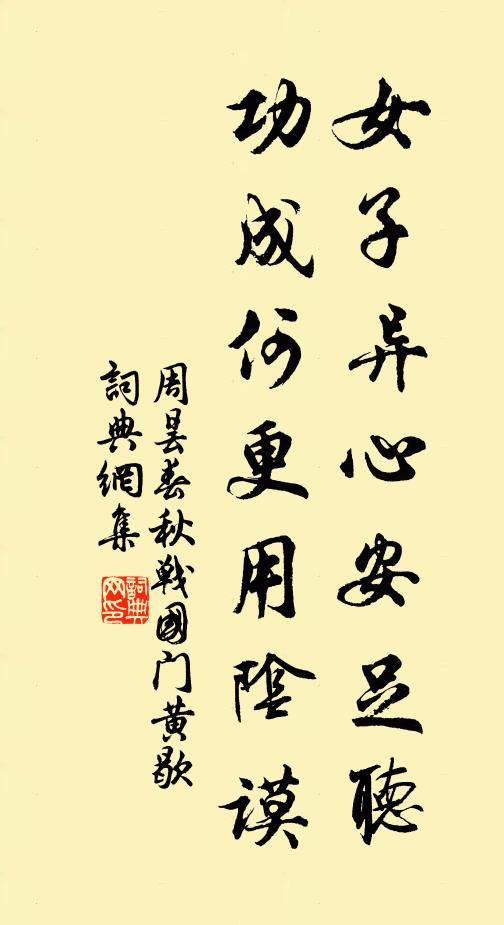 女子异心安足聽
功成何更用陰謨
周昙春秋戰國门黄歇
詞典網集
詞典
网印